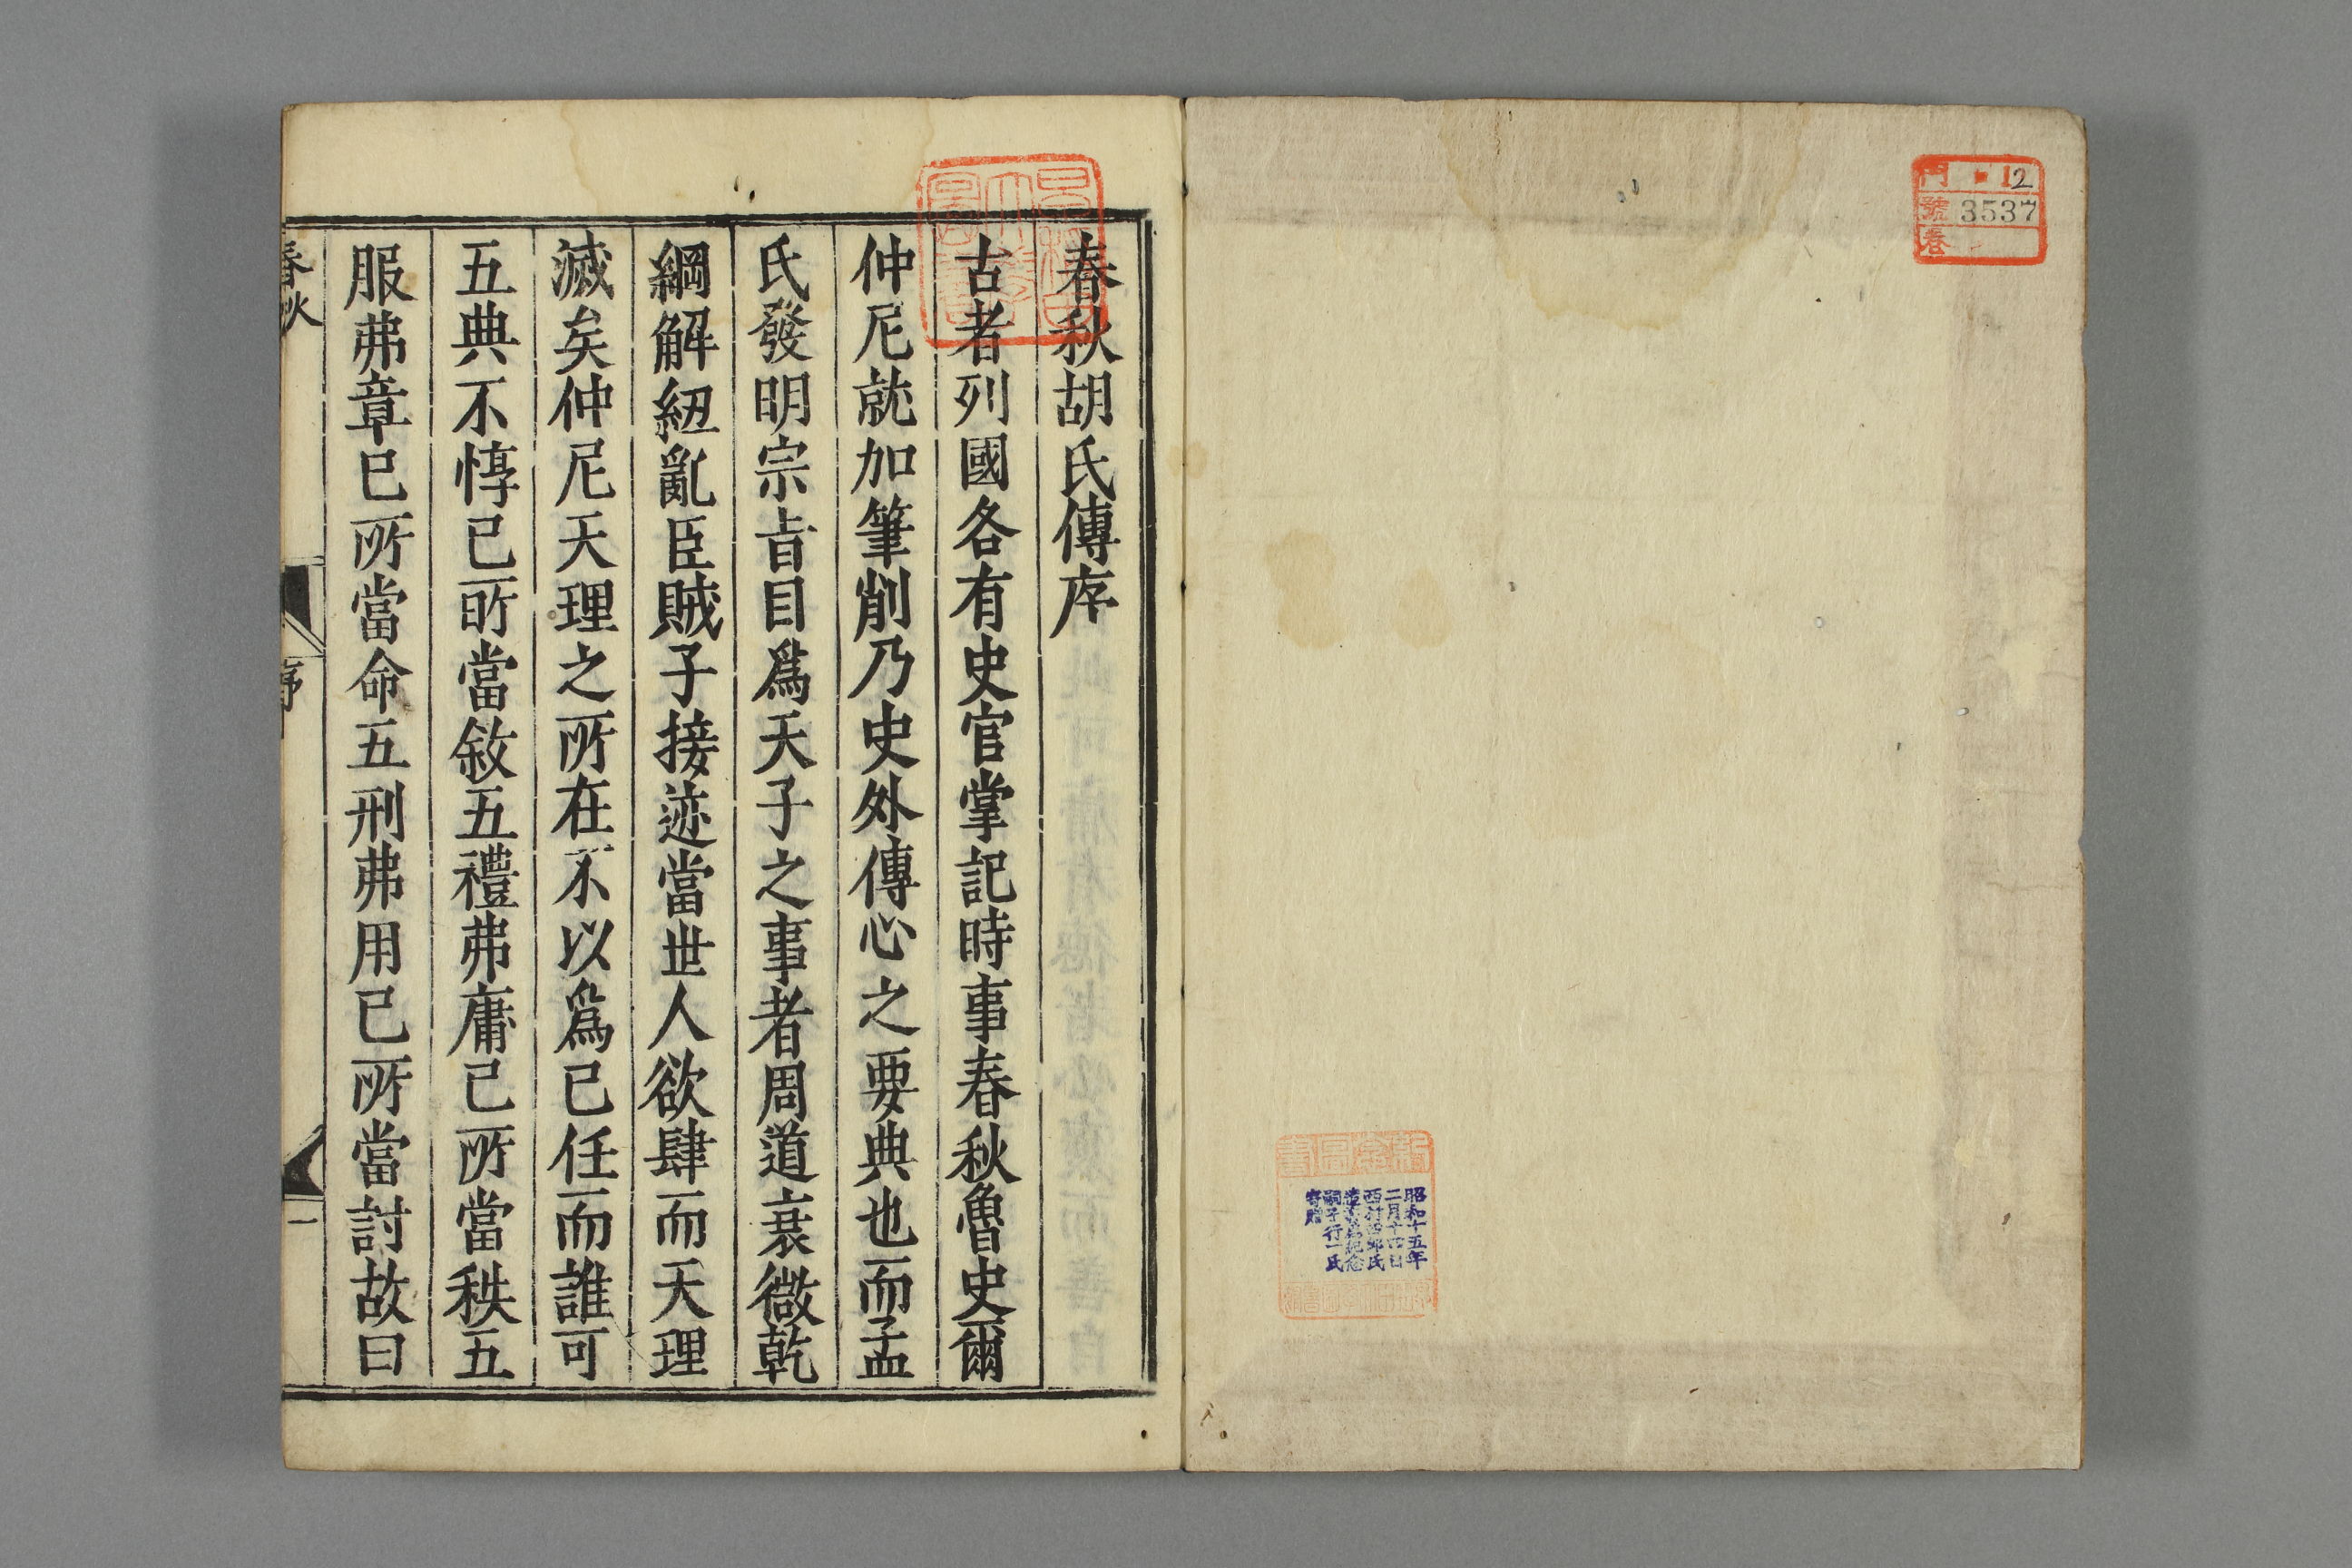 門 12
號 3537
卷
昭和十五年
二月十四日
西村酉郎氏
嗣子行一氏
寄贈
春秋胡氏傳序
古者列國各有史官掌記時事春秋魯史爾
仲尼就加筆削乃史外傳心之要典也而孟
氏發明宗㫖目爲天子之事者周道衰微乾
綱解紐亂臣賊子接迹當世人欲肆而天理
滅矣仲尼天理之所在不以爲已任而誰可
五典不惇已所當敘五禮弗庸已所當秩五
服弗章已所當命五刑弗用已所當討故曰
春秋
序
一